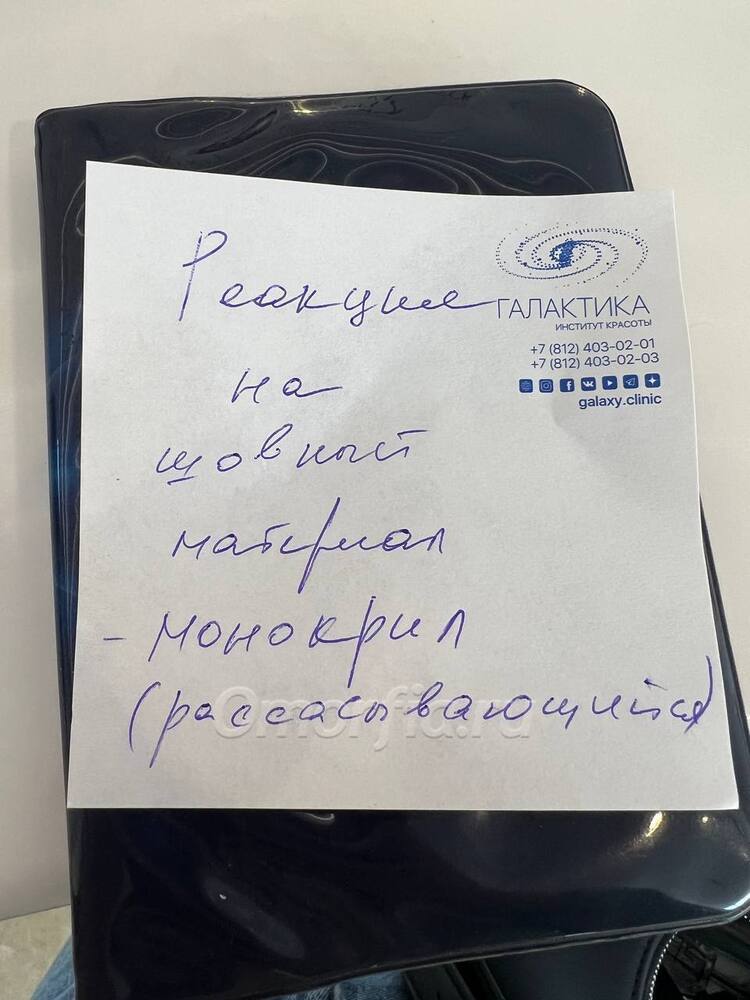 Реакция
на
шовный
материал
- монокрил
(рассасывающийся)
ГАЛАКТИКА
ИНСТИТУТ КРАСОТЫ
+7 (812) 403-02-01
+7 (812) 403-02-03
galaxy.clinic
Omorfia.ru